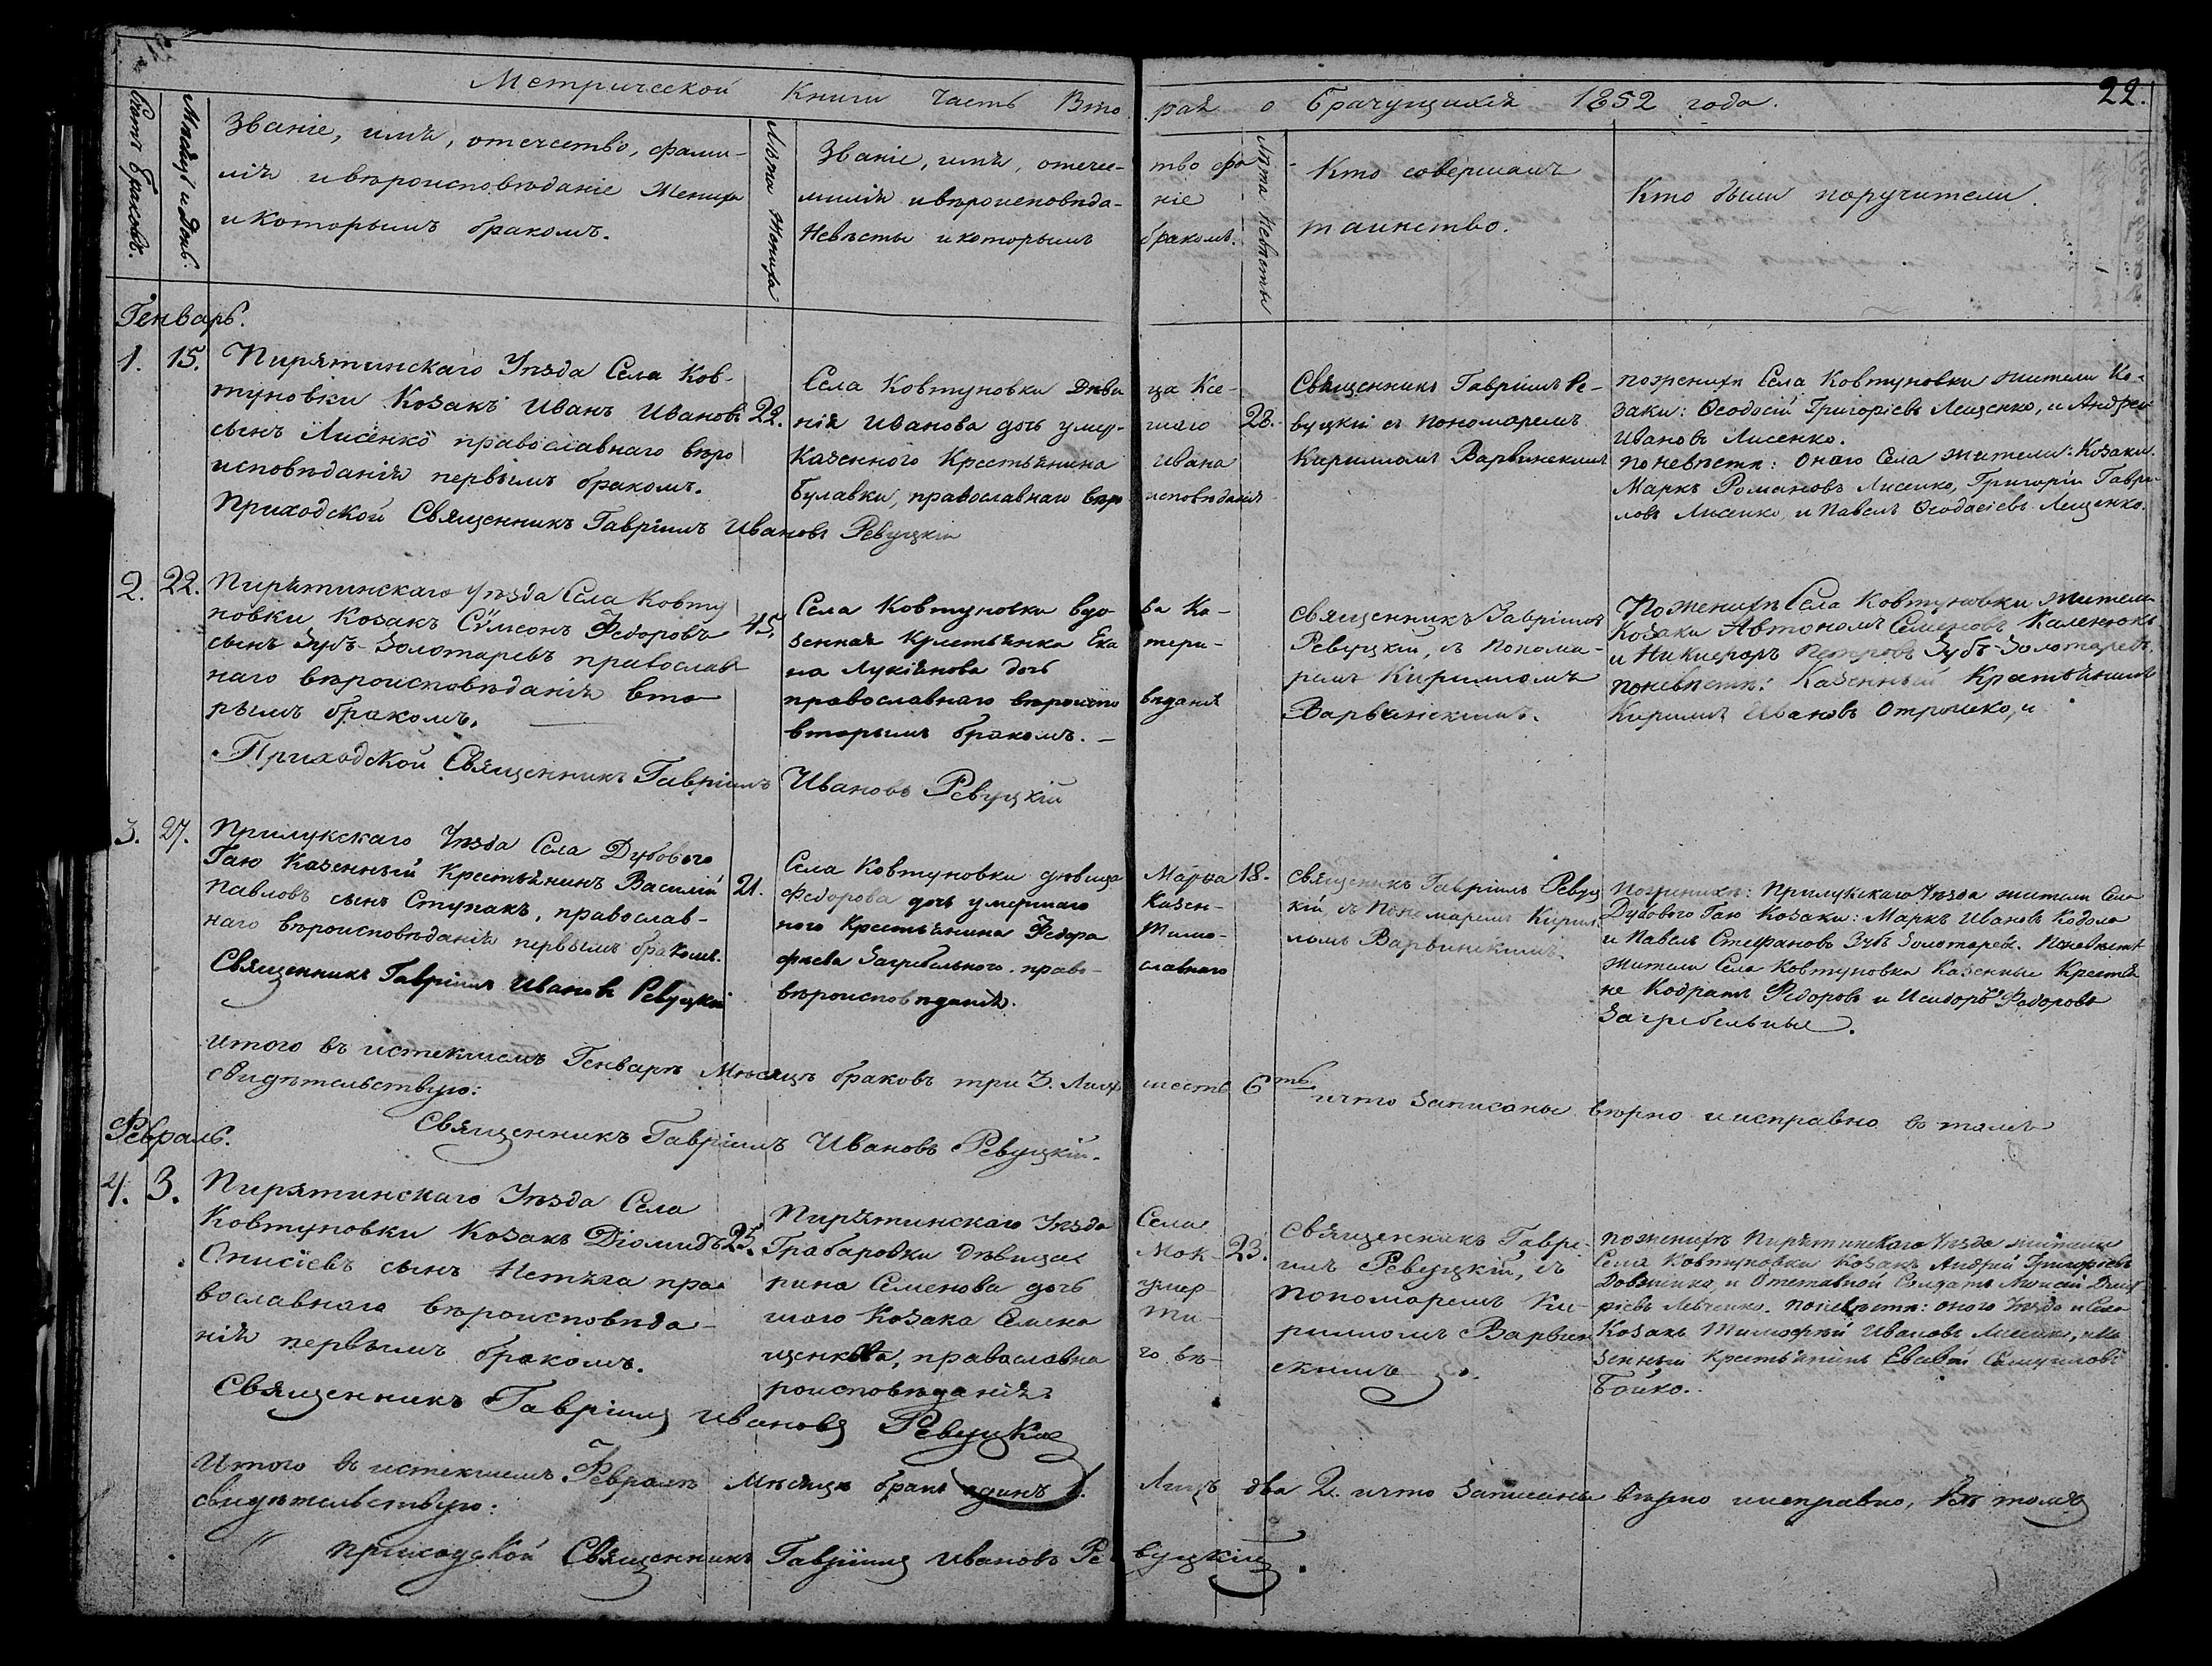 22.
Метрической Книги Часть Вто рая о Брачущихся 1852 года.
Счетъ браковъ.
Мѣсяцъ и день.
Званіе, имя, отечество, фами-
лія и вѣроисповѣданіе Жениха
и которымъ бракомъ.
Лѣта Жениха
Званіе, имя, отече- тво фа-
милія и вѣроисповѣда- ніе
Невѣсты и которымъ бракомъ.
Лѣта Невѣсты
Кто совершалъ
таинство.
Кто были поручители.
Генварь.
1. 15.
Пирятинскаго Уѣзда Села Ков-
туновки Козакъ Иванъ Ивановъ 22.
сынъ Лисенко православнаго вѣро
исповѣданія первымъ бракомъ.
Села Ковтуновки дѣви ца Ксе-
нія Иванова дочь умер- шаго 28.
Казенного Крестьянина Ивана
Булавки, православнаго вѣро исповѣданія
Священникъ Гавріилъ Ре-
вуцкій съ пономаремъ
Кирилломъ Варвинскимъ
по женихѣ Села Ковтуновки жители Ко-
заки: Ѳеодосій Григоріевъ Лещенко, и Андрей
Ивановъ Лисенко.
по невѣстѣ: Онаго Села жители: Козаки
Маркъ Романовъ Лисенко, Григорій Гаври-
ловъ Лисенко, и Павелъ Ѳеодосіевъ Лещенко.
Приходской Священникъ Гавріилъ Ивановъ Ревуцкій
2. 22.
Пирятинскаго Уѣзда Села Ковту
новки Козакъ Сѵмеонъ Федоровъ 45.
сынъ Зубъ-Золотаревъ православ
наго вѣроисповѣданія вто
рымъ бракомъ.
Села Ковтуновки вдо ва Ка-
зенная Крестьянка Ека тери-
на Лукіянова дочь
православнаго вѣроиспо вѣданія
вторымъ бракомъ.
Священникъ Гавріилъ
Ревуцкій, съ Понома-
ремъ Кирилломъ
Варвинскимъ.
По женихѣ Села Ковтуновки жители
Козаки Автономъ Семеновъ Каленюкъ
и Никифоръ Петровъ Зубъ-Золотаревъ.
по невѣстѣ: Казенный Крестьянинъ
Кирилъ Ивановъ Отрошко, и
Приходской Священникъ Гавріилъ Ивановъ Ревуцкій
3. 27.
Прилукскаго Уѣзда Села Дубового
Гаю Казенный Крестьянинъ Василій 21.
Павловъ сынъ Ступакъ, православ-
наго вѣроисповѣданія первымъ бракомъ.
Села Ковтуновки дѣвица Марѳа 18.
Федорова дочь умершаго Казен-
ного Крестьянина Федора Тимо-
фѣева Загребельного. право- славнаго
вѣроисповѣданія.
Священникъ Гавріилъ Ревуц
кій, съ Пономаремъ Кирил
ломъ Варвинскимъ.
По женихѣ: Прилукскаго Уѣзда жители Села
Дубового Гаю Козаки: Маркъ Ивановъ Кодола
и Павелъ Стефановъ Зубъ Золотаревъ. По невѣстѣ
жители Села Ковтуновки Казенные Крестья
не Кодратъ Федоровъ и Исидоръ Федоровъ
Загребельные.
Священникъ Гавріилъ Ивановъ Ревуцкій
Итого въ истекшемъ Генварѣ Мѣсяцѣ браковъ три 3. Лицъ шесть 6ть что записаны вѣрно и исправно въ томъ
свидѣтельствую:
Священникъ Гавріилъ Ивановъ Ревуцкій.
Февраль.
4. 3.
Пирятинскаго Уѣзда Села
Ковтуновки Козакъ Діомидъ 25.
Онисіевъ сынъ Нетяга пра
вославнаго вѣроисповѣда-
нія первымъ бракомъ.
Пирятинскаго Уѣзда Села
Грабаровки дѣвица Мок- 23.
рина Семенова дочь умер-
шаго Козака Семена Ти-
щенкова, православна го вѣ-
роисповѣданія.
Священникъ Гаврі-
илъ Ревуцкій, съ
Пономаремъ Ки-
рилломъ Варвин
скимъ.
по женихѣ Пирятинскаго Уѣзда жители
Села Ковтуновки Козакъ Андрей Григоріевъ
и Отставной Солдатъ Дмит
ріевъ Левченко. по невѣстѣ: оного Уѣзда и Села
Козакъ Тимофѣй Ивановъ Лисенко, и Ка
зенный Крестьянинъ Самуиловъ
Бойко.
Священникъ Гавріилъ Ивановъ Ревуцкій
Итого въ истекшемъ Февралѣ Мѣсяцѣ бракъ одинъ 1. Лицъ два 2. что записаны вѣрно и исправно, Въ томъ
свидѣтельствую:
Приходской Священникъ Гавріилъ Ивановъ Ре вуцкій.